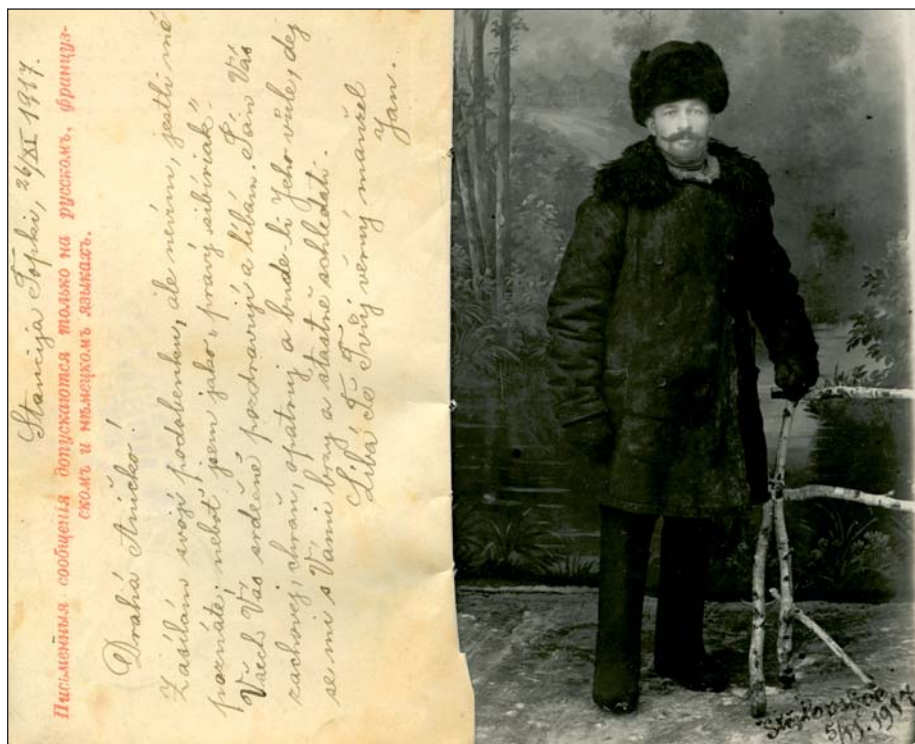 Stancija Topki, 26/XI 1917.
Письменныя сообщенія допускаются только на русскомъ, француз-
скомъ и нѣмецкомъ языкахъ.
Drahá Aničko!
Zasílám svoji podobenku, ale nevím, jestli mé
poznáte; neboť jsem jako "pravý sibiriak"
Všech Vás srdečně pozdravuji a líbám. Pán Vás
zachovej, chraň, opatruj a bude-li Jeho vůle, dej
se mi s Vámi brzy a šťastně schledati.
Líbá Tě Tvůj věrný manžel
Jan.
5/XI. 1917